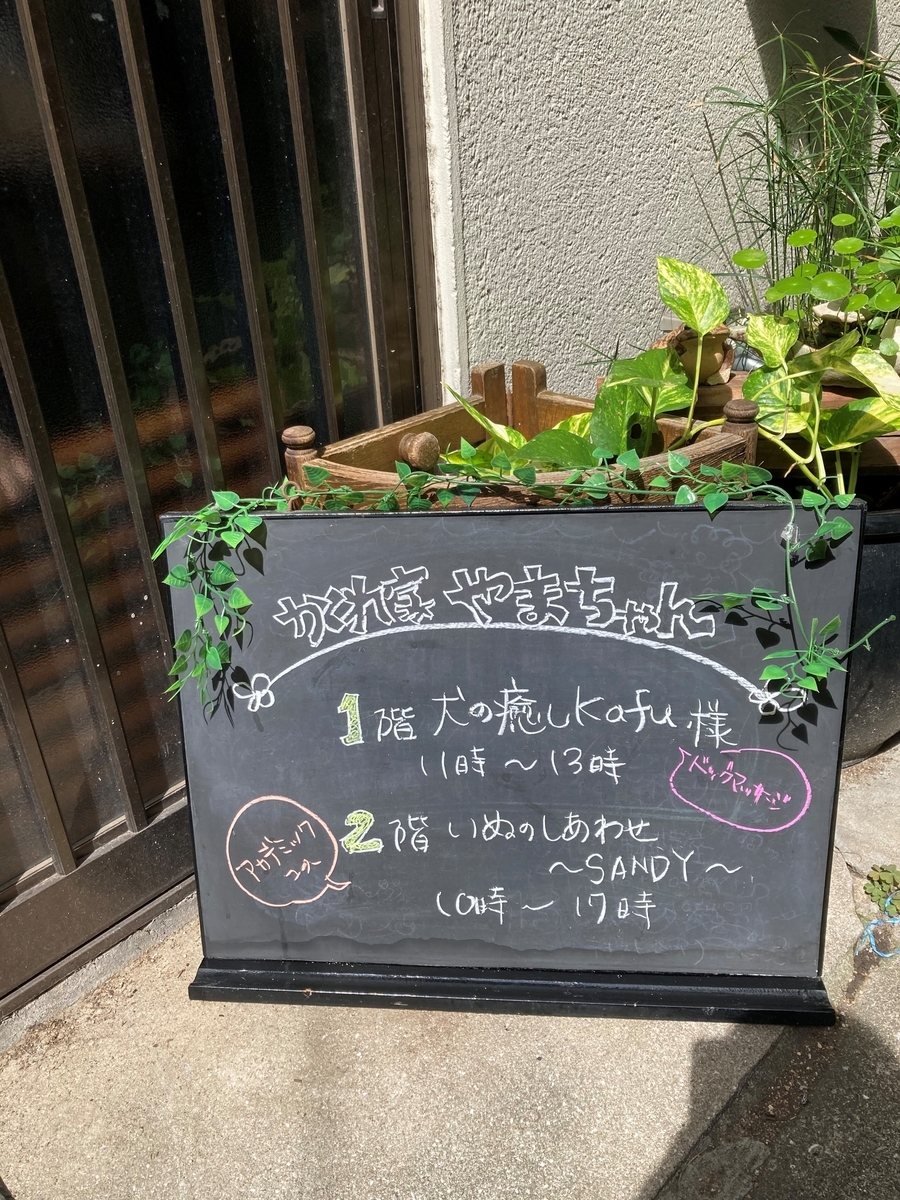 かくれ家 やまちゃん
1階 犬の癒しKafu 様
11時 ～ 13時
ドッグマッサージ
2階 いぬのしあわせ
～SANDY～
アカデミック
10時 ～ 17時